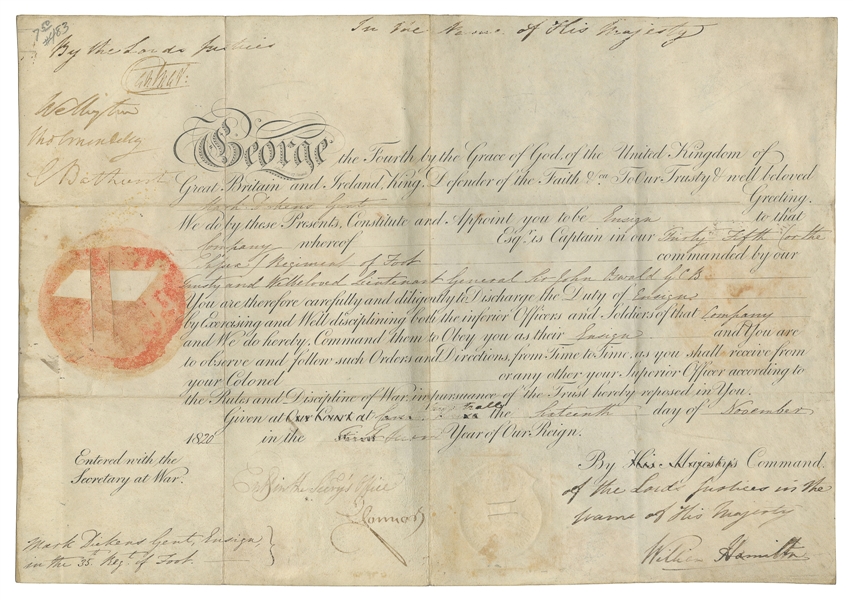 7 50
#483
In the Name of His Majesty
By the Lords Justices
Wellington
C Bathurst
George the Fourth by the Grace of God, of the United Kingdom of
Great Britain and Ireland, King, Defender of the Faith &ca To Our Trusty & well beloved
Mark Dickens Gent Greeting.
We do by these Presents, Constitute and Appoint you to be Ensign to that
Company whereof Esqr. is Captain in our Thirty Fifth (or the
Sussex) Regiment of Foot commanded by our
Trusty and Wellbeloved Lieutenant General Sir John Oswald G.C.B.
You are therefore carefully and diligently to Discharge the Duty of Ensign
by Exercising and Well disciplining both the inferior Officers and Soldiers of that Company
and We do hereby Command them to Obey you as their Ensign and You are
to observe and follow such Orders and Directions, from Time to Time, as you shall receive from
your Colonel or any other your Superior Officer according to
the Rules and Discipline of War, in pursuance of the Trust hereby reposed in You.
Given at Our Court at the Sixteenth day of November
1820 in the Second Year of Our Reign.
Entered with the
Secretary at War.
By His Majesty's Command.
of the Lords Justices in the
name of His Majesty
William Hamilton
Mark Dickens Gent, Ensign
in the 35t. Regt. of Foot.